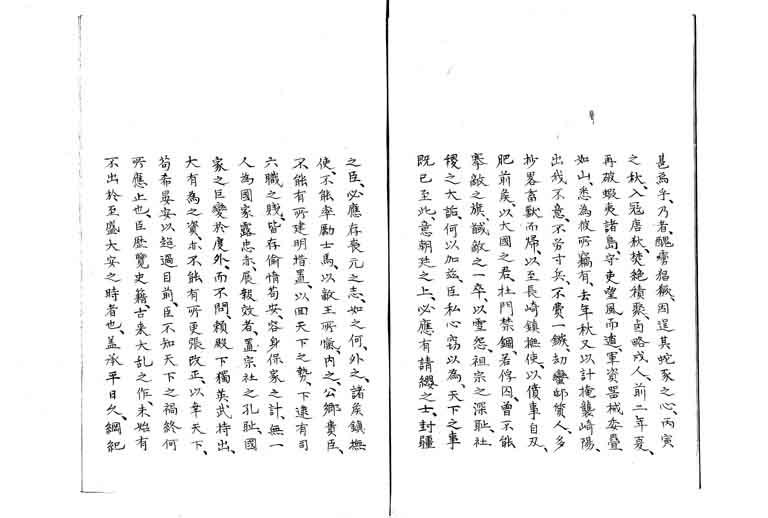 甚爲乎、乃者、醜虜猖獗、因逞其蛇豕之心、丙寅
之秋、入冦唐秋、焚絶積聚、卤略戍人、前二年夏、
再破蝦夷諸島、守吏望風而逃、軍資噐械委疊
如山、悉為彼所竊有、去年秋又以計掩襲崎陽、
出我不意、不労寸兵、不費一鏃、刧蠻邸質人、多
抄畧畜獣而帰、以至長崎鎮撫使、以僨事自刄、
肥前矦、以大國之君、杜門禁錮若俘囚、曽不能
搴敵之旗、馘敵之一卒、以雪怨祖宗之深耻、社
稷之大詬、何以加玆、臣私心竊以為、天下之事
既已至此、意朝廷之上、必應有請纓之士、封疆
之臣、必應存喪元之志、如之何、外之、諸矦鎮撫
使、不能率勵士馬、以敵王所愾、内之、公郷貴臣、
不能有所建明措置、以囬天下之勢、下逮有司
六職之賤、皆存偷惰苟安、容身保家之計、無一
人為國家露忠赤、展報效者、置宗社之孔耻、國
家之巨變於度外、而不問、頼殿下獨英武持出、
大有為之資、亦不能有所更張改正、以幸天下、
苟希晏安以超過目前、臣不知天下之禍終何
所應止也、臣歴覽史籍古来大乱之作、未始有
不出於至盛大安之時者也、盖承平日久、綱紀